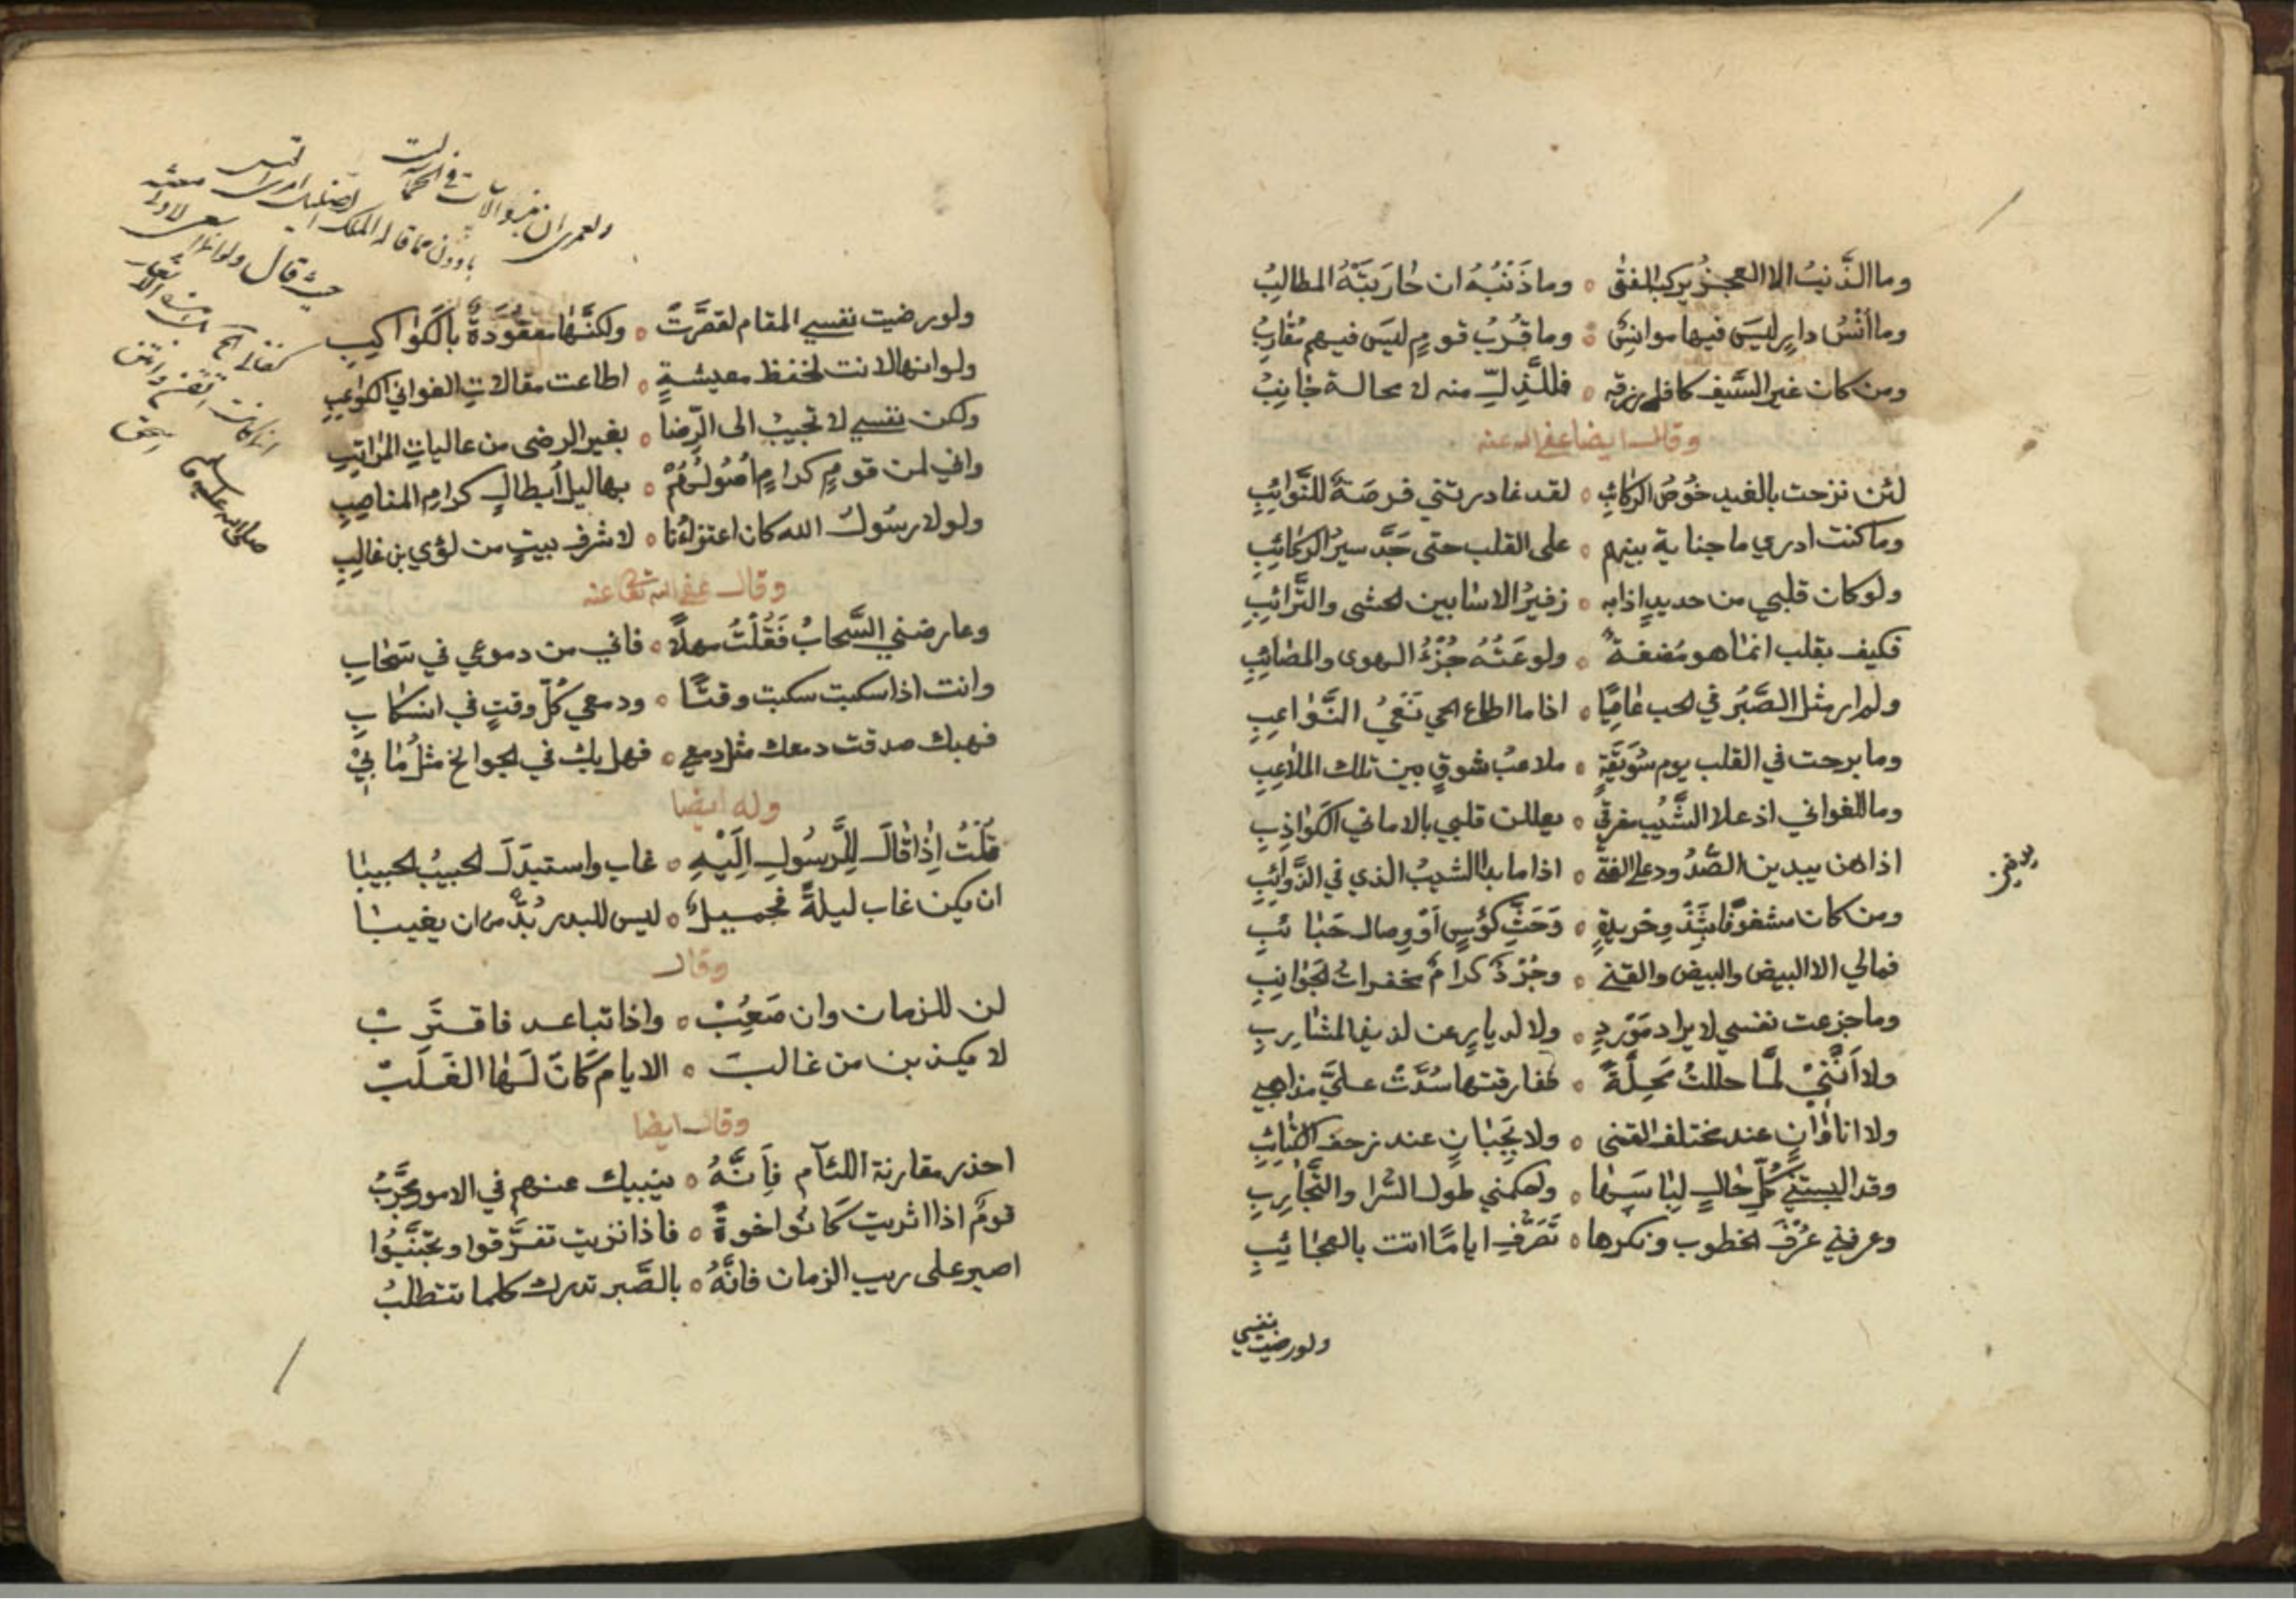 وما الذَّنبُ الا العجزُ يركبه الفتى ٥ وما ذَنْبُهُ ان حٰارَبَتْهُ المطالبُ
وما أُنْسُ دارٍ ليسَ فيها موانِسٌ ٥ وما قُربُ قومٍ ليسَ فيهم مُقٰارِبُ
ومن كان غير السَّيفِ كافل رزقه ٥ فللذُّلِّ منه لا محالة جٰانِبُ
وقال ايضا عفى الله عنه
لئن نزحت بالغيد خُوصُ الركائبِ ٥ لقد غادرتني فرصَةً للنَّوائِبِ
وما كنت ادري ما جناية بينهم ٥ على القلب حتى جَدَّ سيرُ الركائِبِ
ولو كان قلبي من حديدٍ اذابه ٥ زفيرُ الاسٰا بين الحشى والتَّرائِبِ
فكيف بقلب انما هو مُضغةٌ ٥ ولوعَتُهُ جُزْءُ الهوى والمصائِبِ
ولم ار مثل الصَّبرِ في الحب عٰاصِيًا ٥ اذا ما اطاع الحي نَعْيُ النَّوٰاعِبِ
وما برحت في القلب يوم سُوَيْقَةٍ ٥ ملاعبُ شوقٍ بين تلك الملاعبِ
وما للغواني اذ علا الشَّيبُ مفرقي ٥ يعللن قلبي بالاماني الكَوٰاذِبِ
اذا هن يبدين الصَّدُ ودع الفتى ٥ اذا ما بدا الشيبُ الذي في الذَّوائِبِ
ومن كان مشغوفًا بِشَدْوِ خريدةٍ ٥ وَحَثِّ كؤسٍ اَوْ وِصال حَبٰائبِ
فمالي الا البيض والبيض والقنى ٥ وجُرْدٌ كرامٌ مخفرات الجَوٰانِبِ
وما جزعت نفسي لايراد مَوْرِدٍ ٥ ولا لديارٍ عن لذيذ المشٰارِبِ
ولا اَنَّنِيْ لَمَّا حللتُ مَحِلَّةً ٥ ففارقتها سُدَّتْ عليَّ مذاهبي
ولا انا وٰانٍ عند مختلف القنى ٥ ولا بِجَبٰانٍ عند زحف الكتٰائِبِ
وقد البستني كُلَّ حٰالٍ لِبٰاسَهٰا ٥ وحكمني طول السُّرا والتَّجٰارِبِ
وعرفني عُرْفَ الخطوب ونكرها ٥ تَصَرُّفِ ايامًا اتت بالعجٰائِبِ
ولو رضيت نفسي
ولعمري ان
ولو رضيت نفسي المقام لقصَّرتْ ٥ ولكنَّهٰا معقُودَةٌ بالكَوٰاكِبِ
ولو انها لانت لخفظ معيشةٍ ٥ اطاعت مقالاتِ الغواني الكواعِبِ
ولكن نفسي لا تجيبُ الى الرِّضا ٥ بغير الرضى من عالياتِ المراتِبِ
واني لمن قومٍ كرامٍ اُصُولُهُمْ ٥ بهاليل اَبطالٍ كرامِ المناصِبِ
ولولا رسُولُ الله كان اعتزاؤنا ٥ لاشرف بيتٍ من لؤي بن غالبِ
وقال عفى الله تعالى عنه
وعارضني السَّحابُ فَقُلْتُ مهلًا ٥ فاني من دموعي في سَحٰابِ
وانت اذا سكبت سكبت وقتًا ٥ ودمعي كُلَّ وقتٍ في انسكٰابِ
فهبك صدقت دمعك مثل دمعي ٥ فهل بك في الجوانح مثلُ مٰا بِيْ
وله ايضا
قُلْتُ اِذٰا قٰالَ لِلرَّسُولِ اِلَيْهِ ٥ غاب واستبدَلَ الحبيبُ الحبيبٰا
ان يكن غاب ليلةً فجميلٌ ٥ ليس للبدرِ بُدٌّ من ان يغيبٰا
وقال
لن للزمان وان صَعُبْ ٥ واذا تباعد فاقتَرِبْ
لا تكذبن من غالبَ ٥ الايام كَانَ لَهٰا الغَلَبْ
وقال ايضا
احذر مقارنة اللئآم فَاِنَّهُ ٥ ينبيك عنهم في الامور مجَرِّبُ
قومٌ اذا اثريت كَانُوا اخوةً ٥ فاذا تربت تفرَّقوا وتجنَّبُوا
اصبر على ريب الزمان فانَّهُ ٥ بالصَّبر تدرك كلما تتطلبُ